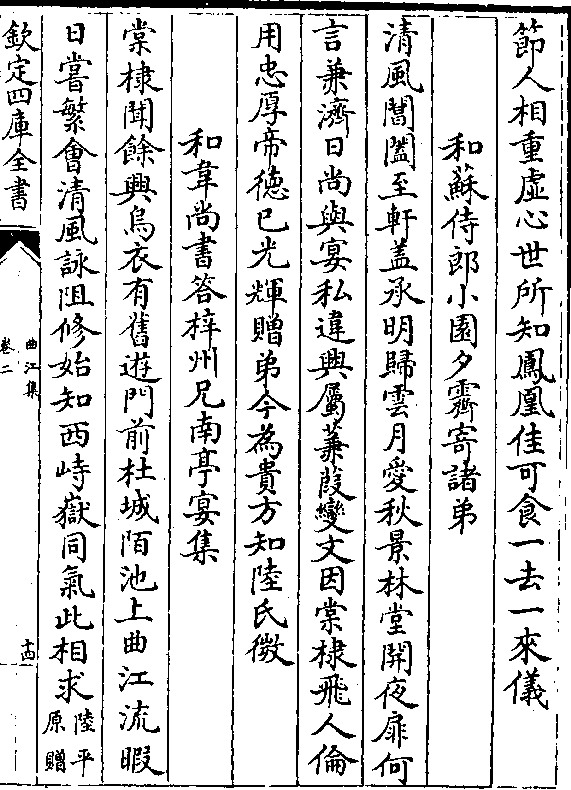 節人相重虛心世所知鳳凰佳可食一去一來儀
和蘇侍郎小園夕霽寄諸弟
清風閶闔至軒盖承明歸雲月愛秋景林堂開夜扉何
言兼濟日尚與宴私違興屬蒹葭變文因棠棣飛人倫
用忠厚帝德已光輝贈弟今為貴方知陸氏微
和韋尚書答梓州兄南亭宴集
棠棣聞餘興烏衣有舊遊門前杜城陌池上曲江流暇
日嘗繁會清風詠阻修始知西峙嶽同氣此相求陸平
原贈
欽定四庫全書
曲江集
卷二
十四